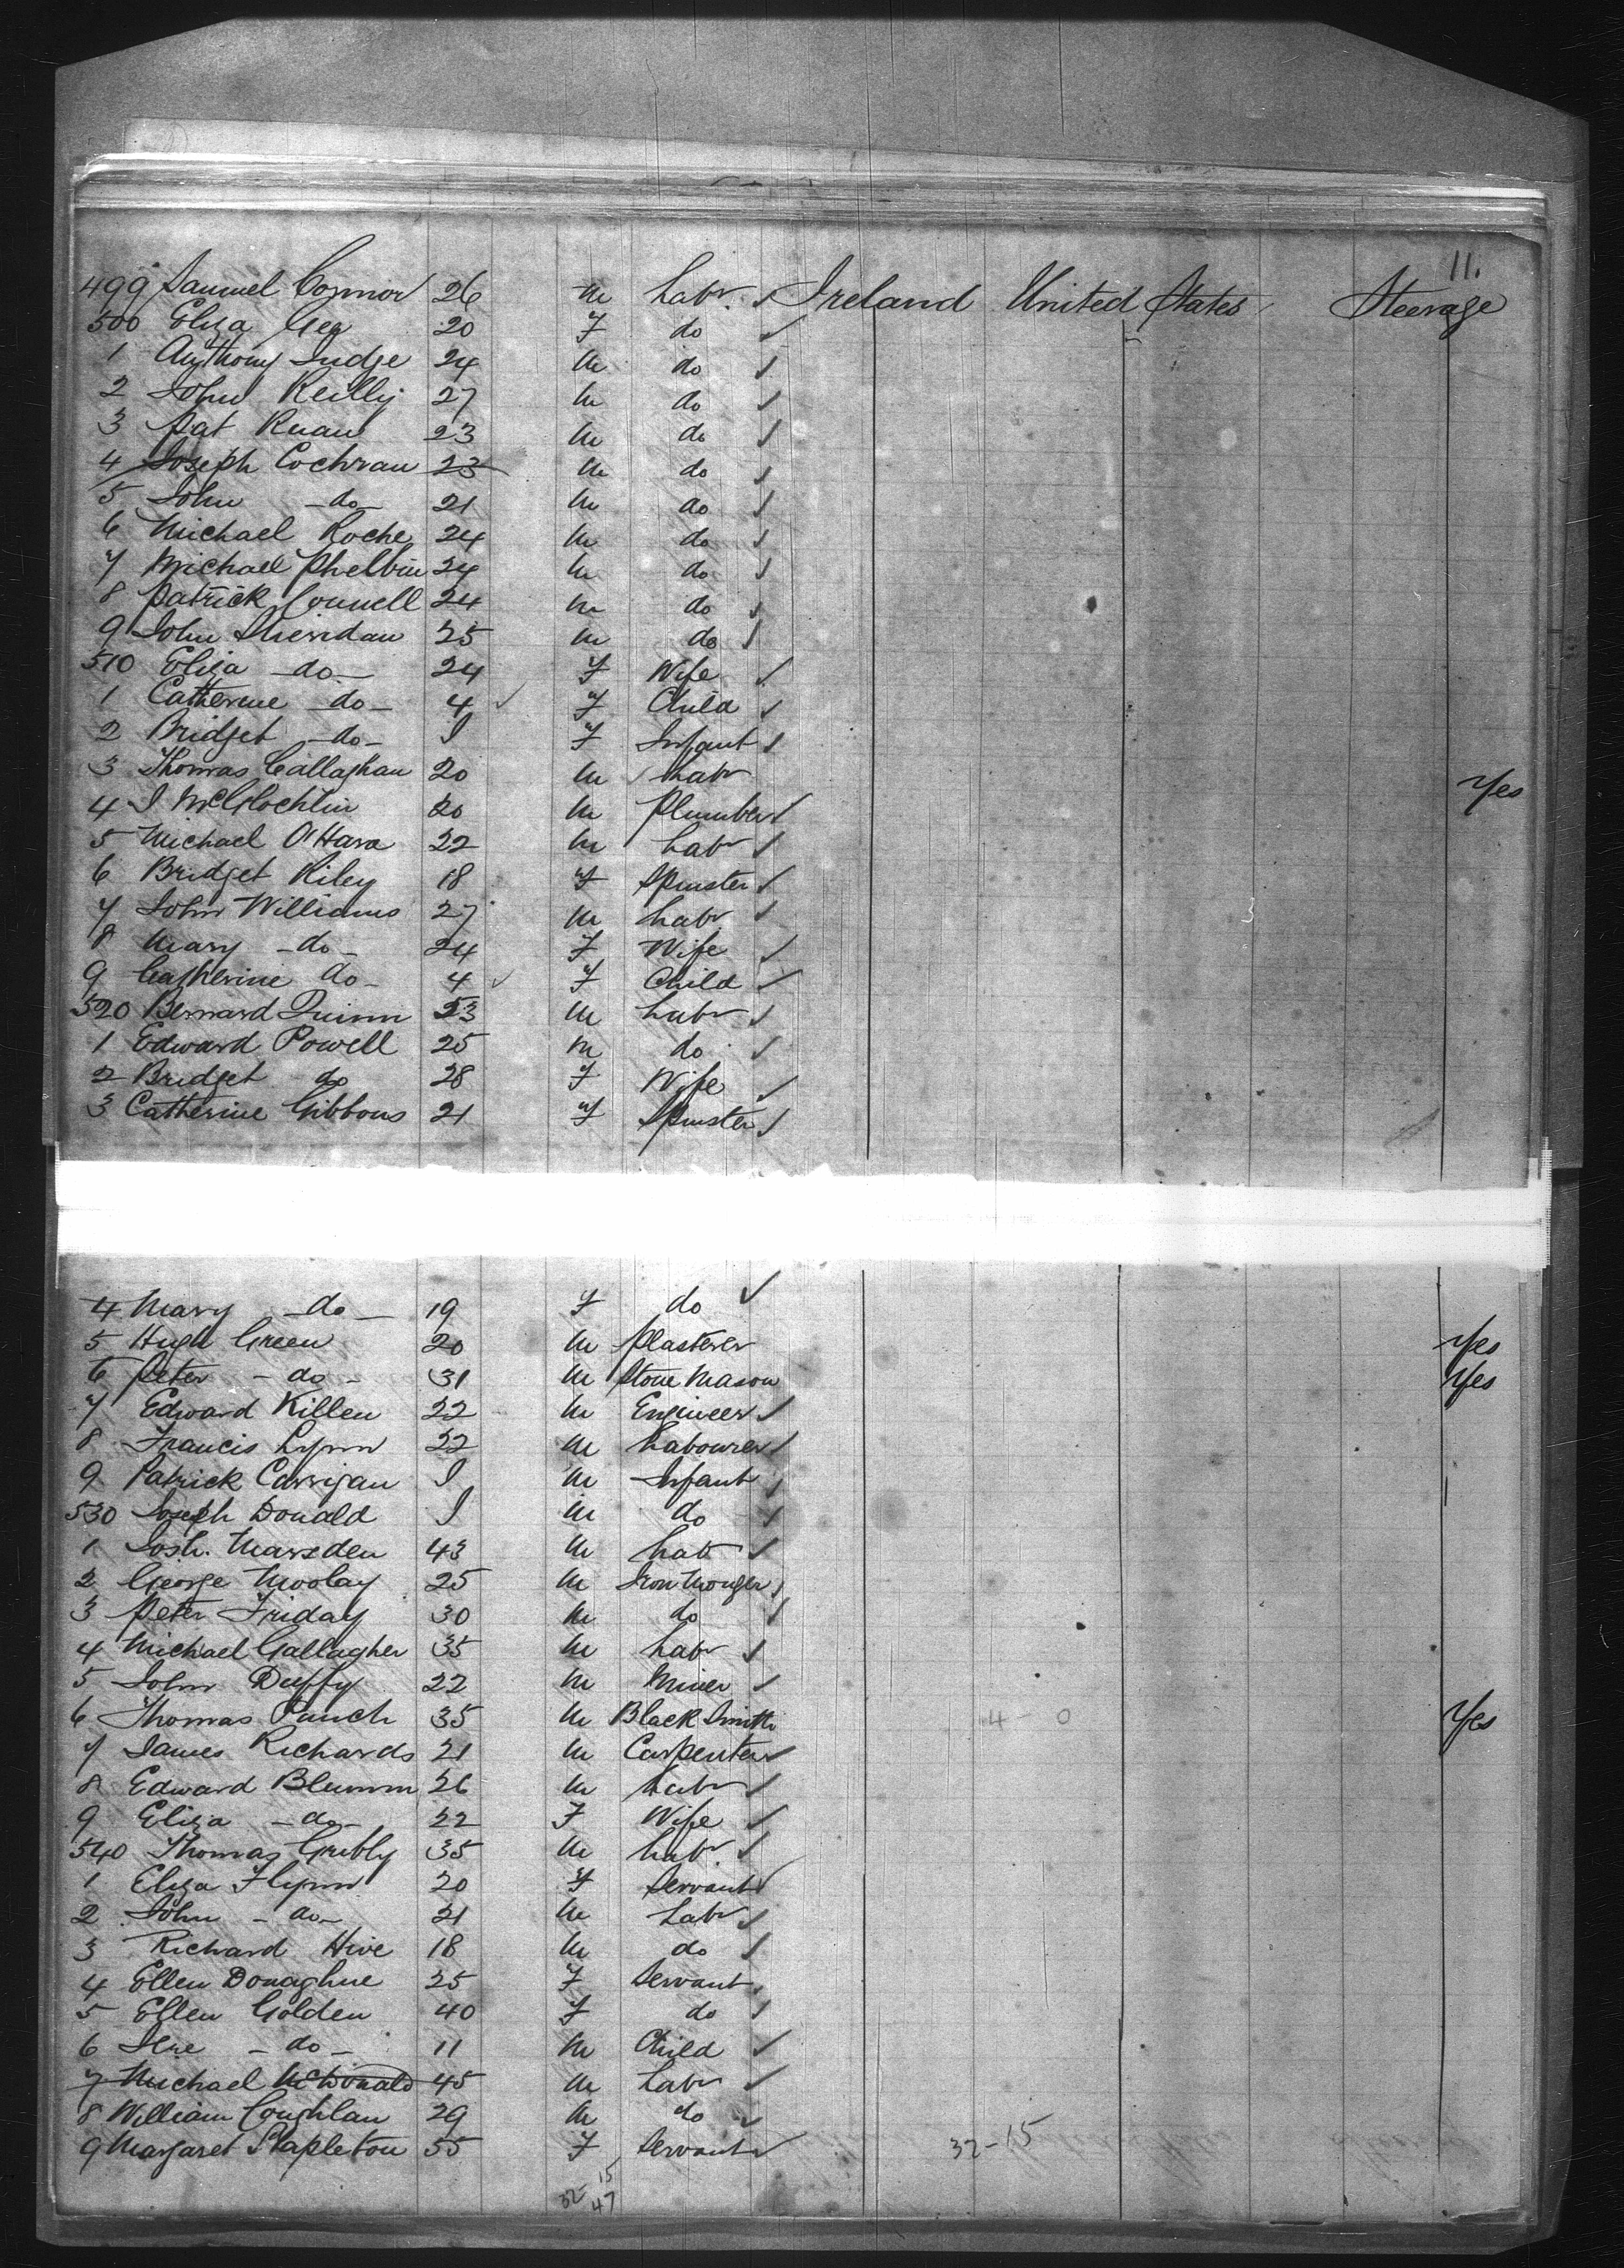 11.
499 Samuel Connor 26 m Labr Ireland United States Steerage
500 Eliza 20 F do
1 Anthony Judge 24 m do
2 John Reilly 27 m do
3 Pat Ruan 23 m do
4 Joseph Cochran 23 m do
5 John -do- 21 m do
6 Michael Roche 24 m do
7 Michael Phelbin 24 m do
8 Patrick Connell 24 m do
9 John Sheridan 25 m do
510 Eliza -do- 24 F Wife
1 Catherine -do- 4 F Child
2 Bridget -do- I F Infant
3 Thomas Callaghan 20 m Labr
4 J McGlochlin 20 m Plumber Yes
5 Michael O'Hara 22 m Labr
6 Bridget Riley 18 F Spinster
7 John Williams 27 m Labr
8 Mary -do- 24 F Wife
9 Catherine do- 4 F Child
520 Bernard Quinn 23 m Labr
1 Edward Powell 25 m do
2 Bridget do 28 F Wife
3 Catherine Gibbons 21 F Spinster
4 Mary -do- 19 F do
5 Hugh Green 20 m Plasterer Yes
6 Peter -do- 31 m Stone Mason Yes
7 Edward Killen 22 m Engineer
8 Francis Lynn 22 m Labourer
9 Patrick Carrigan I m Infant
530 Joseph Donald I m do
1 Josh. Marsden 43 m Lab
2 George Moolay 25 m Iron Monger
3 Peter Friday 30 m do
4 Michael Gallagher 35 m Labr
5 John Duffy 22 m Miner
6 Thomas Punch 35 m Black Smith 4 - 0 Yes
7 James Richards 21 m Carpenter
8 Edward Blumm 26 m Labr
9 Eliza -do- 22 F Wife
540 Thomas Grubly 35 m Labr
1 Eliza Flynn 20 F Servant
2 John -do- 21 m Labr
3 Richard Hive 18 m do
4 Ellen Donaghue 25 F Servant
5 Ellen Golden 40 F do
6 -do- 11 m Child
7 Michael McDonald 45 m Labr
8 William Coughlan 29 m do
9 Margaret Stapleton 55 F Servant 32-15
32- 15
47